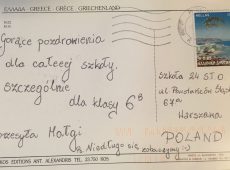 ΕΛΛΑΔΑ GREECE GRÈCE GRIECHENLAND
Gorące pozdrowienia
dla całej szkoły,
szczególnie
dla klasy 6B
przesyła Małgi
Ps. Niedługo się zobaczymy :)
HELLAS
Szkoła 24 STO
ul. Powstańców
67a
Warszawa
POLAND
EDITIONS AST. ALEXANDRIS TEL.